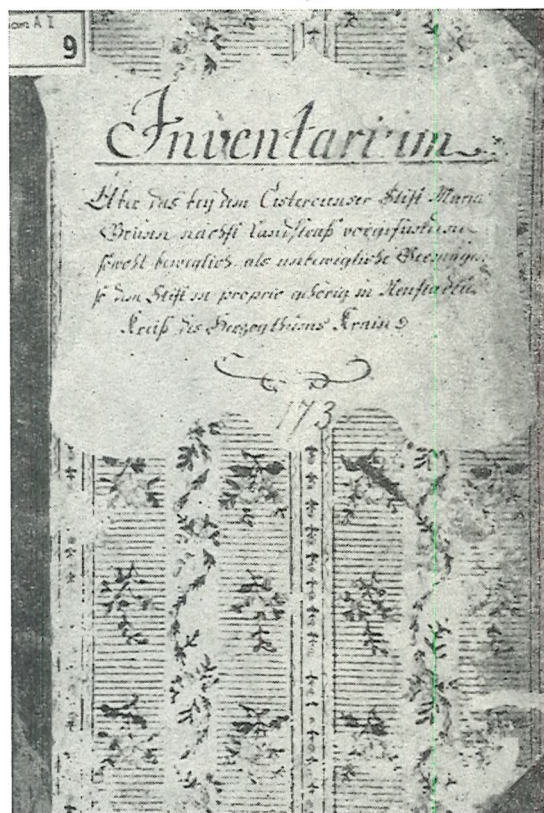 A I
9
Inventarium
Über das bey dem Cistercienser Stift Maria
Brünn nächst Landstraß vorgefundene
sowohl beweglich als unbewegliche Vermögen
so dem Stift in proprio gehörig in Neustadtler
Kreiß des Herzogthums Krain
173